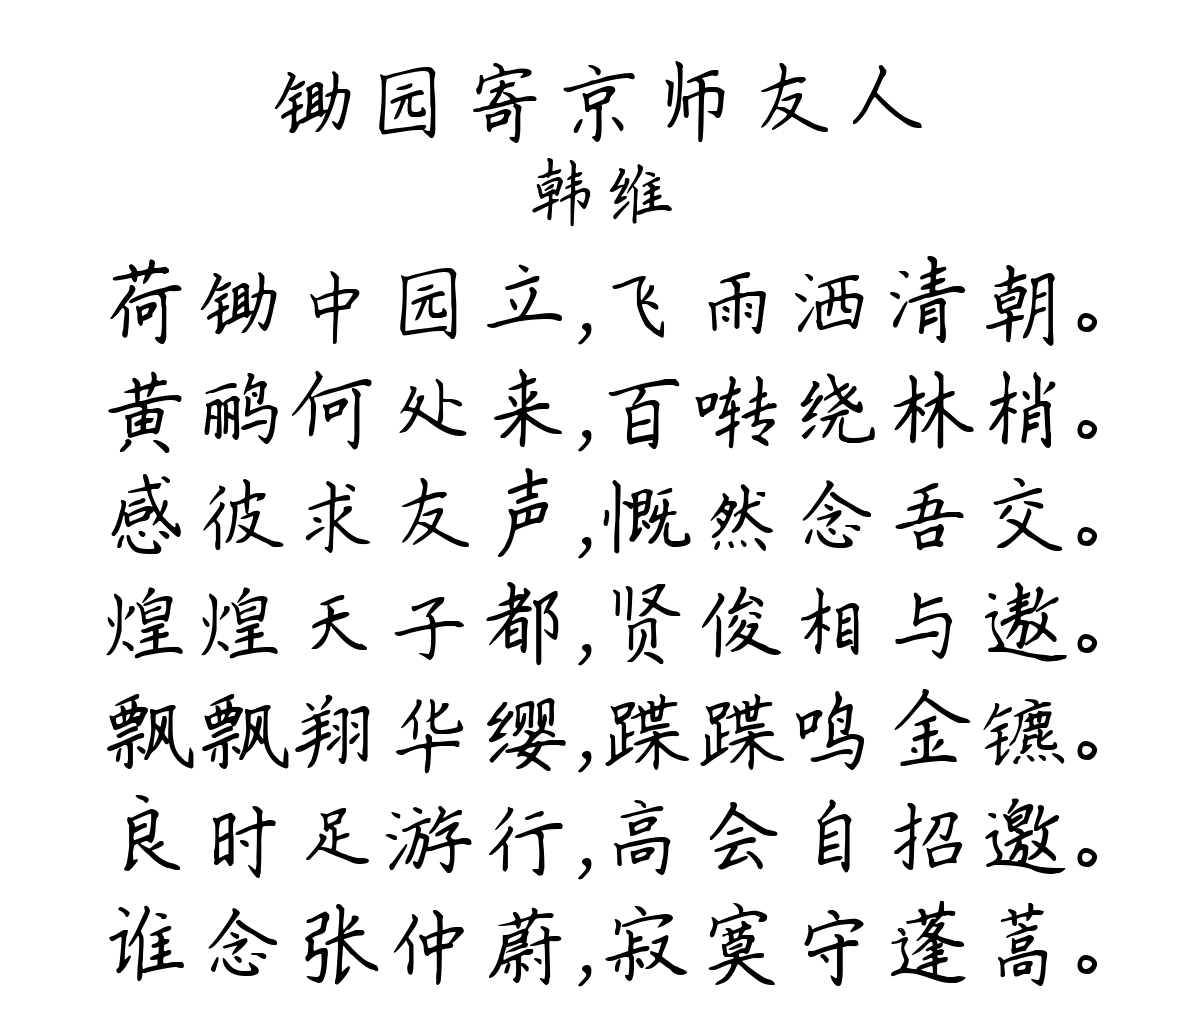 锄园寄京师友人
韩维
荷锄中园立,飞雨洒清朝。
黄鹂何处来,百啭绕林梢。
感彼求友声,慨然念吾交。
煌煌天子都,贤俊相与遨。
飘飘翔华缨,蹀蹀鸣金镳。
良时足游行,高会自招邀。
谁念张仲蔚,寂寞守蓬蒿。